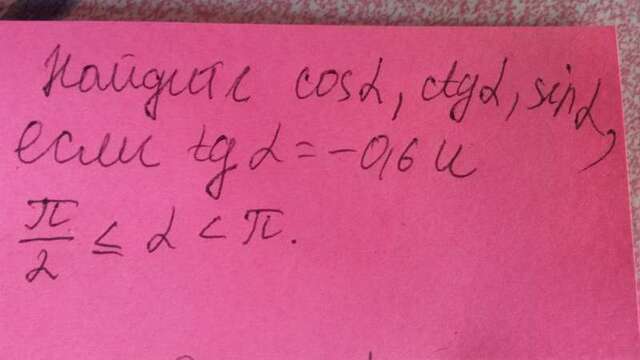 Найдите cosα, ctgα, sinα,
если tgα = -0,6 и
π/2 ≤ α < π.